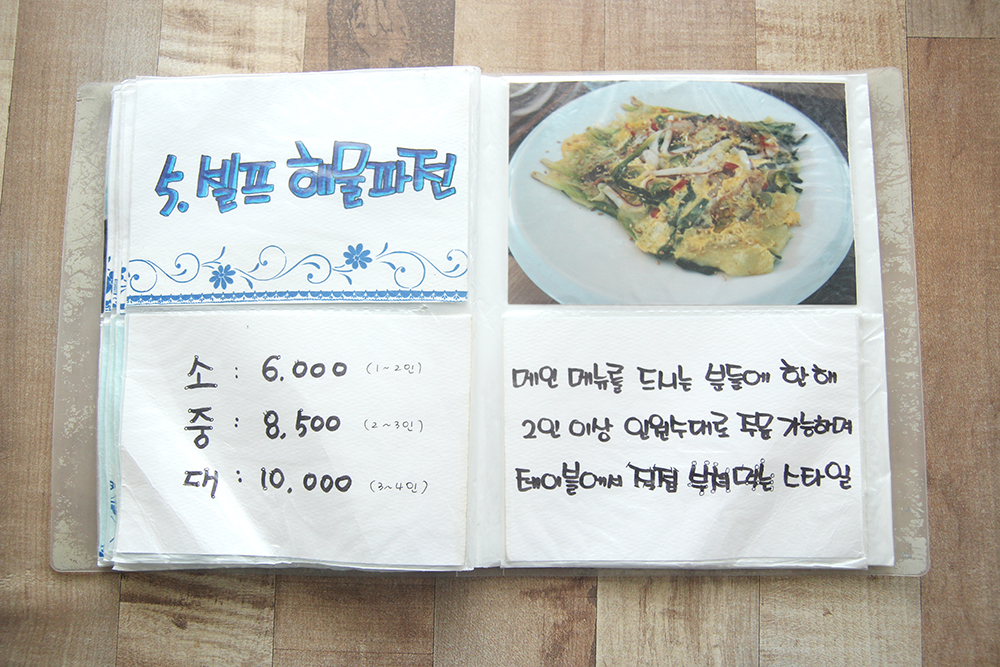 5. 셀프 해물파전
소 : 6,000 (1~2인)
중 : 8,500 (2~3인)
대 : 10,000 (3~4인)
메인 메뉴를 드시는 분들에 한해
2인 이상 인원수대로 주문 가능하며
테이블에서 직접 부쳐먹는 스타일